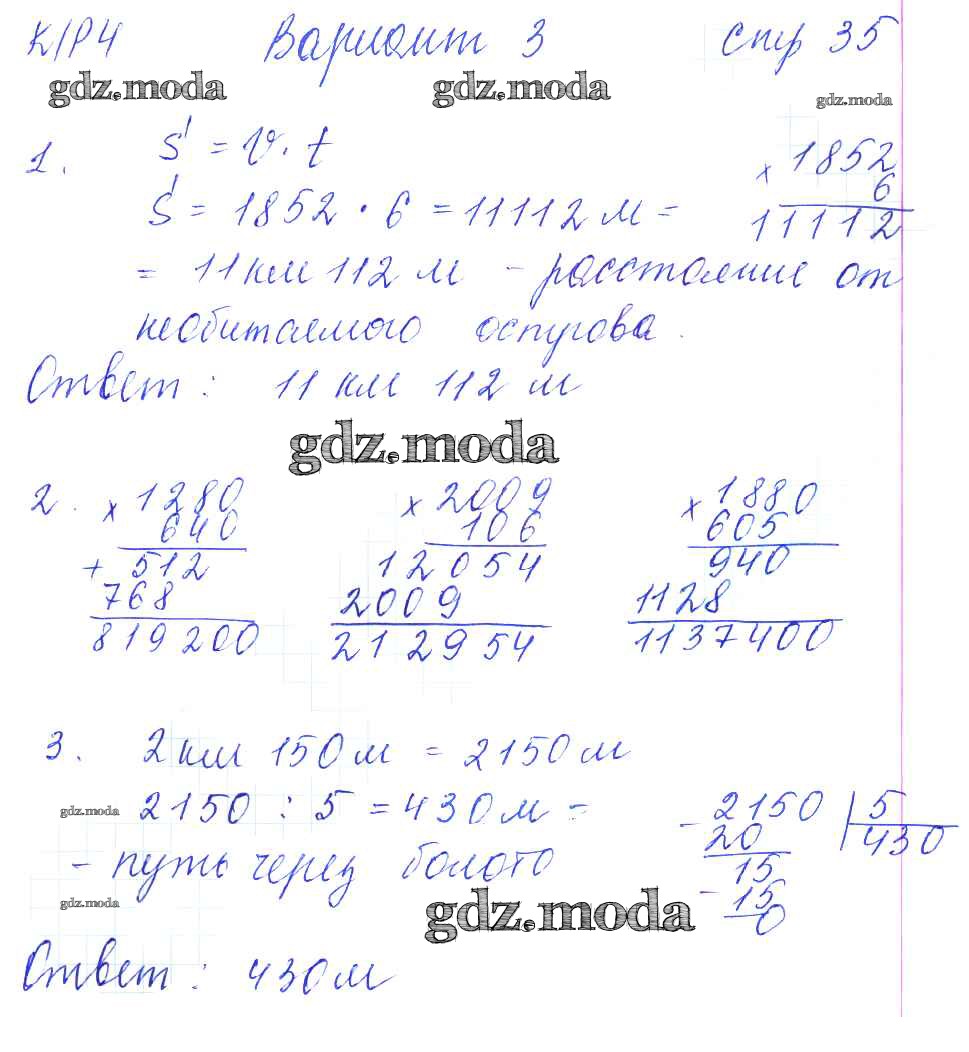 К/Р4 Вариант 3 стр 35
gdz.moda gdz.moda gdz.moda
1. S = V · t
× 1852
6
11112
S = 1852 · 6 = 11112 м =
= 11 км 112 м - расстояние от
необитаемого острова.
Ответ: 11 км 112 м
gdz.moda
2. × 1280
640
+ 512
768
819200
× 2009
106
12054
2009
212954
× 1880
605
940
1128
1137400
3. 2 км 150 м = 2150 м
gdz.moda 2150 : 5 = 430 м -
- путь через болото
- 2150 | 5
20 430
15
- 15
0
gdz.moda gdz.moda
Ответ: 430 м